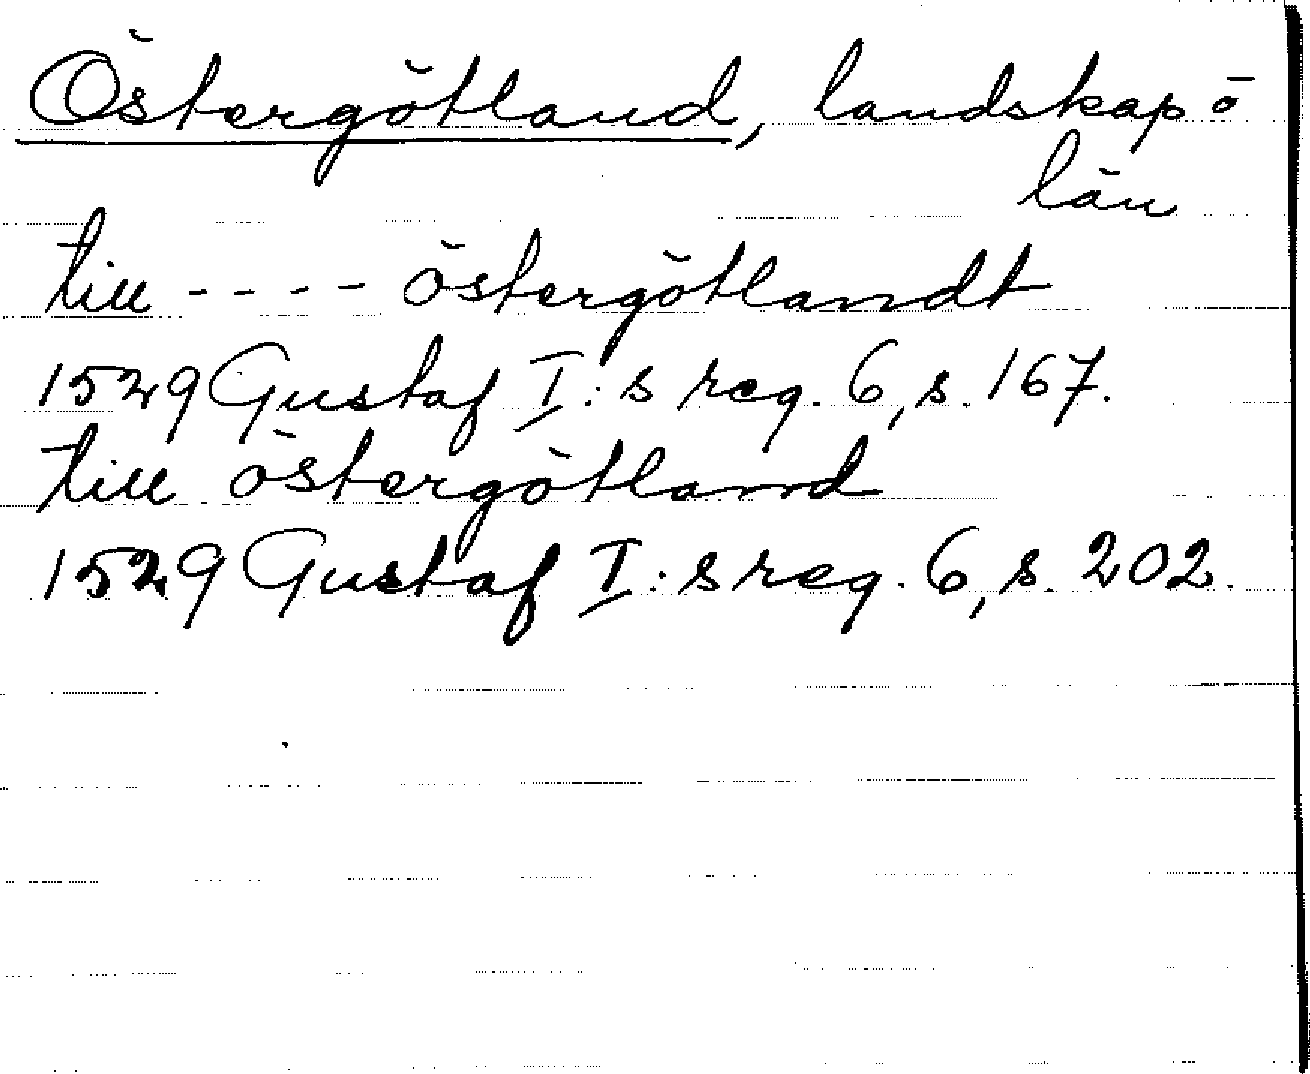 Östergötland, landskap ö
län
till ---- östergötlandt
1529 Gustaf I:s reg. 6, s. 167.
till östergötland
1529 Gustaf I:s reg. 6, s. 202.